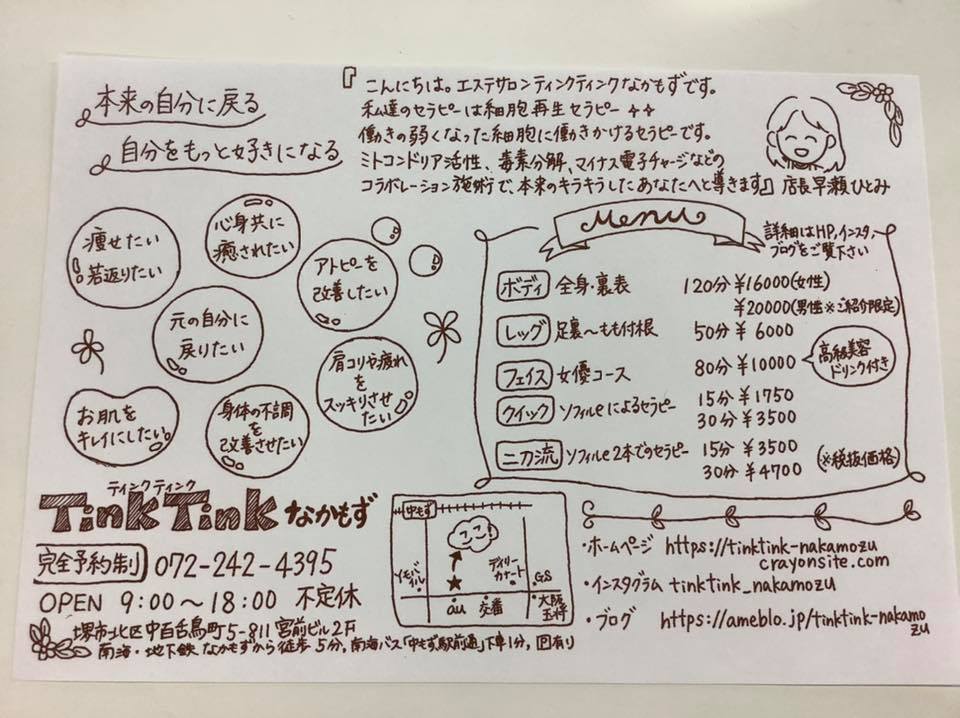 本来の自分に戻る
自分をもっと好きになる
『こんにちは。エステサロンティンクティンクなかもずです。
私達のセラピーは細胞再生セラピー
働きの弱くなった細胞に働きかけるセラピーです。
ミトコンドリア活性、毒素分解、マイナス電子チャージなどの
コラボレーション施術で、本来のキラキラしたあなたへと導きます』店長早瀬ひとみ
痩せたい
若返りたい
心身共に
癒されたい
アトピーを
改善したい
元の自分に
戻りたい
肩コリや疲れ
を
スッキリさせ
たい
お肌を
キレイにしたい
身体の不調
を
改善させたい
Menu
詳細はHP,インスタ,
ブログをご覧下さい
ボディ 全身・裏表 120分 ¥16000(女性)
¥20000(男性※ご紹介限定)
レッグ 足裏〜もも付根 50分 ¥6000
フェイス 女優コース 80分 ¥10000
高級美容
ドリンク付き
クイック ソフィルeによるセラピー 15分 ¥1750
30分 ¥3500
二刀流 ソフィルe2本でのセラピー 15分 ¥3500
30分 ¥4700
(※税抜価格)
ティンクティンク
TinkTink なかもず
完全予約制 072-242-4395
OPEN 9:00〜18:00 不定休
堺市北区中百舌鳥町5-811 宮前ビル2F
南海・地下鉄 なかもずから徒歩5分,南海バス「中もず駅前通」下車1分, P有り
中もず
ここ!
デイリー
カナート
GS
au
交番
大阪
王将
・ホームページ https://tinktink-nakamozu
crayonsite.com
・インスタグラム tinktink_nakamozu
・ブログ https://ameblo.jp/tinktink-nakamo
zu